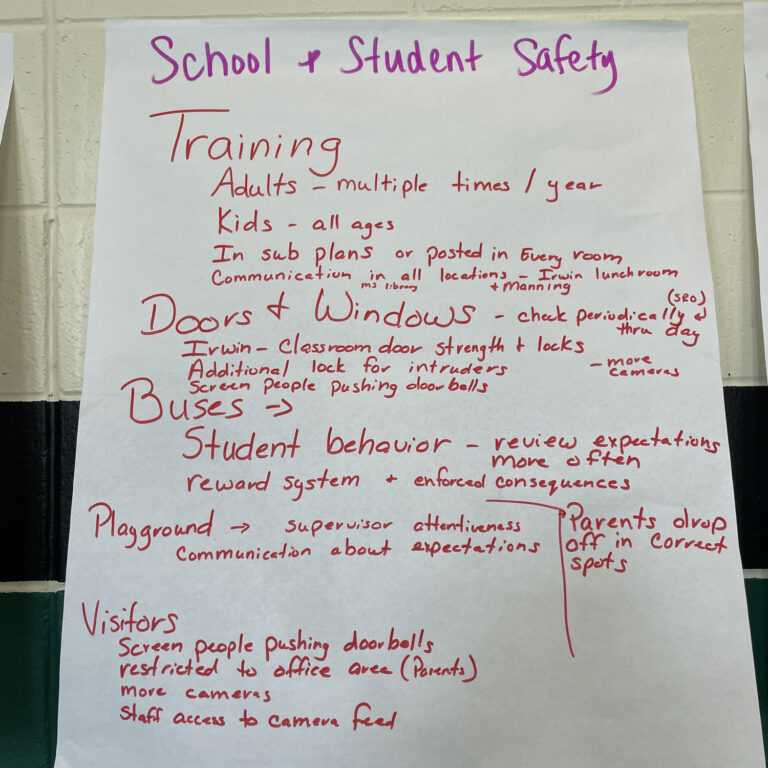 School + Student Safety
Training
Adults - multiple times / year
Kids - all ages
In sub plans or posted in Every room
Communication in all locations - Irwin lunchroom
ms library + Manning
Doors + Windows - check periodically (SRO)
thru day
Irwin - Classroom door strength + locks
Additional lock for intruders - more
cameras
Screen people pushing doorbells
Buses →
Student behavior - review expectations
more often
reward system + enforced consequences
Playground → supervisor attentiveness
Communication about expectations
Parents drop
off in correct
spots
Visitors
Screen people pushing doorbells
restricted to office area (Parents)
more cameras
Staff access to camera feed